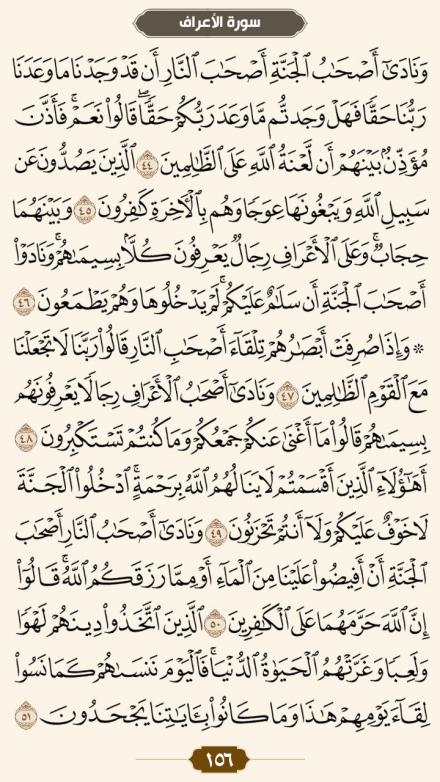 سورة الأعراف
وَنَادَىٰٓ أَصۡحَٰبُ ٱلۡجَنَّةِ أَصۡحَٰبَ ٱلنَّارِ أَن قَدۡ وَجَدۡنَا مَا وَعَدَنَا
رَبُّنَا حَقّٗا فَهَلۡ وَجَدتُّم مَّا وَعَدَ رَبُّكُمۡ حَقّٗاۖ قَالُواْ نَعَمۡۚ فَأَذَّنَ
مُؤَذِّنُۢ بَيۡنَهُمۡ أَن لَّعۡنَةُ ٱللَّهِ عَلَى ٱلظَّٰلِمِينَ ٤٤ ٱلَّذِينَ يَصُدُّونَ عَن
سَبِيلِ ٱللَّهِ وَيَبۡغُونَهَا عِوَجٗا وَهُم بِٱلۡأٓخِرَةِ كَٰفِرُونَ ٤٥ وَبَيۡنَهُمَا
حِجَابٞۚ وَعَلَى ٱلۡأَعۡرَافِ رِجَالٞ يَعۡرِفُونَ كُلَّۢا بِسِيمَىٰهُمۡۚ وَنَادَوۡاْ
أَصۡحَٰبَ ٱلۡجَنَّةِ أَن سَلَٰمٌ عَلَيۡكُمۡۚ لَمۡ يَدۡخُلُوهَا وَهُمۡ يَطۡمَعُونَ ٤٦
۞ وَإِذَا صُرِفَتۡ أَبۡصَٰرُهُمۡ تِلۡقَآءَ أَصۡحَٰبِ ٱلنَّارِ قَالُواْ رَبَّنَا لَا تَجۡعَلۡنَا
مَعَ ٱلۡقَوۡمِ ٱلظَّٰلِمِينَ ٤٧ وَنَادَىٰٓ أَصۡحَٰبُ ٱلۡأَعۡرَافِ رِجَالٗا يَعۡرِفُونَهُم
بِسِيمَىٰهُمۡ قَالُواْ مَآ أَغۡنَىٰ عَنكُمۡ جَمۡعُكُمۡ وَمَا كُنتُمۡ تَسۡتَكۡبِرُونَ ٤٨
أَهَٰٓؤُلَآءِ ٱلَّذِينَ أَقۡسَمۡتُمۡ لَا يَنَالُهُمُ ٱللَّهُ بِرَحۡمَةٍۚ ٱدۡخُلُواْ ٱلۡجَنَّةَ
لَا خَوۡفٌ عَلَيۡكُمۡ وَلَآ أَنتُمۡ تَحۡزَنُونَ ٤٩ وَنَادَىٰٓ أَصۡحَٰبُ ٱلنَّارِ أَصۡحَٰبَ
ٱلۡجَنَّةِ أَنۡ أَفِيضُواْ عَلَيۡنَا مِنَ ٱلۡمَآءِ أَوۡ مِمَّا رَزَقَكُمُ ٱللَّهُۚ قَالُوٓاْ
إِنَّ ٱللَّهَ حَرَّمَهُمَا عَلَى ٱلۡكَٰفِرِينَ ٥٠ ٱلَّذِينَ ٱتَّخَذُواْ دِينَهُمۡ لَهۡوٗا
وَلَعِبٗا وَغَرَّتۡهُمُ ٱلۡحَيَوٰةُ ٱلدُّنۡيَاۚ فَٱلۡيَوۡمَ نَنسَىٰهُمۡ كَمَا نَسُواْ
لِقَآءَ يَوۡمِهِمۡ هَٰذَا وَمَا كَانُواْ بِـَٔايَٰتِنَا يَجۡحَدُونَ ٥١
١٥٦